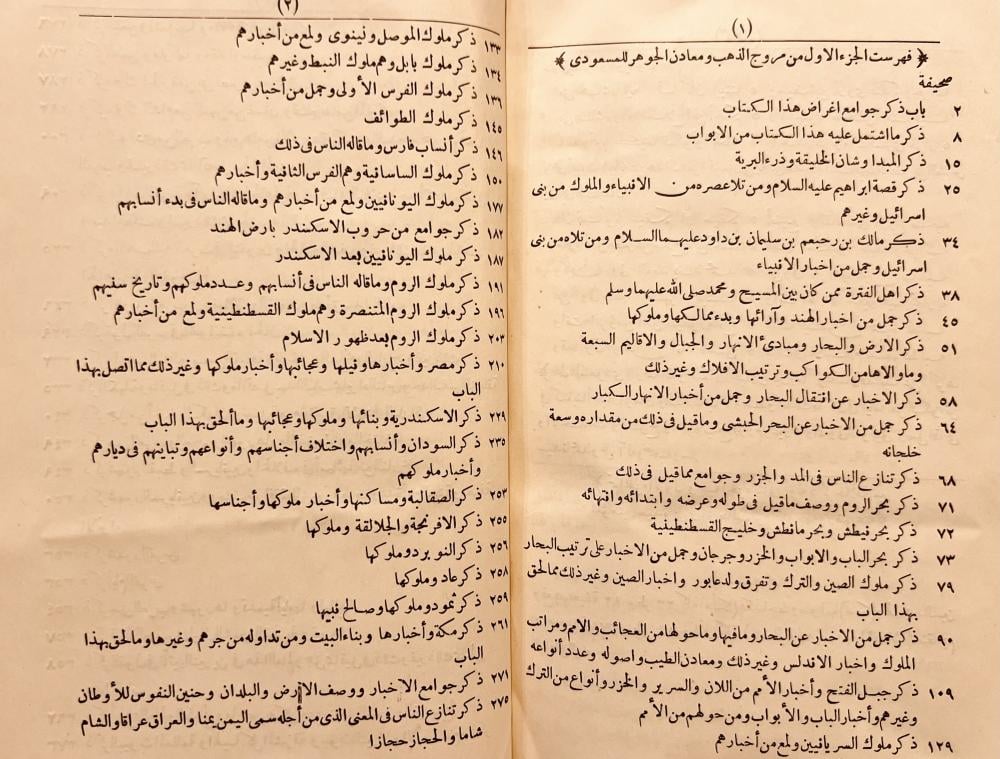 (١)
﴿ فهرست الجزء الاول من مروج الذهب ومعادن الجوهر للمسعودى ﴾
صحيفة
٢ باب ذكر جوامع اغراض هذا الكتاب
٨ ذكر ما اشتمل عليه هذا الكتاب من الابواب
١٥ ذكر المبدا وشان الخليقة وذرء البرية
٢٥ ذكر قصة ابراهيم عليه السلام ومن تلا عصره من الانبياء والملوك من بنى
اسرائيل وغيرهم
٣٤ ذكر مالك بن رحبعم بن سليمان بن داود عليهما السلام ومن تلاه من بنى
اسرائيل وجمل من اخبار الانبياء
٣٨ ذكر اهل الفترة ممن كان بين المسيح و محمد صلى الله عليهما وسلم
٤٥ ذكر جمل من اخبار الهند وآرائها وبدء ممالكها وملوكها
٥١ ذكر الارض والبحار ومبادئ الانهار والجبال والاقاليم السبعة
وما والاها من الكواكب وترتيب الافلاك وغير ذلك
٥٨ ذكر الاخبار عن انتقال البحار وجمل من أخبار الانهار الكبار
٦٤ ذكر جمل من الاخبار عن البحر الحبشى وما قيل فى ذلك من مقداره وسعة
خلجانه
٦٨ ذكر تنازع الناس فى المد والجزر وجوامع مما قيل فى ذلك
٧١ ذكر بحر الروم ووصف ما قيل فى طوله وعرضه وابتدائه وانتهائه
٧٢ ذكر بحر نيطش وبحر مانطش وخليج القسطنطينية
٧٣ ذكر بحر الباب والابواب والخزر وجرجان وجمل من الاخبار على ترتيب البحار
٧٩ ذكر ملوك الصين والترك وتفرق ولد عابور واخبار الصين وغير ذلك مما لحق
بهذا الباب
٩٠ ذكر جمل من الاخبار عن البحار وما فيها وما حولها من العجائب والامم ومراتب
الملوك واخبار الاندلس وغير ذلك ومعادن الطيب واصوله وعدد أنواعه
١٠٩ ذكر جبل الفتح وأخبار الأمم من اللان والسرير والخزر وأنواع من الترك
وغيرهم وأخبار الباب والأبواب ومن حولهم من الأمم
١٢٩ ذكر ملوك السريانيين ولمع من أخبارهم
(٢)
١٣٣ ذكر ملوك الموصل ونينوى ولمع من أخبارهم
١٣٤ ذكر ملوك بابل وهم ملوك النبط وغيرهم
١٣٦ ذكر ملوك الفرس الأولى وجمل من أخبارهم
١٤٥ ذكر ملوك الطوائف
١٤٦ ذكر أنساب فارس وما قاله الناس فى ذلك
١٥٠ ذكر ملوك الساسانية وهم الفرس الثانية وأخبارهم
١٧٧ ذكر ملوك اليونانيين ولمع من أخبارهم وما قاله الناس فى بدء أنسابهم
١٨٢ ذكر جوامع من حروب الاسكندر بارض الهند
١٨٧ ذكر ملوك اليونانيين بعد الاسكندر
١٩١ ذكر ملوك الروم وما قاله الناس فى أنسابهم وعدد ملوكهم وتاريخ سنيهم
١٩٦ ذكر ملوك الروم المتنصرة وهم ملوك القسطنطينية ولمع من أخبارهم
٢٠٣ ذكر ملوك الروم بعد ظهور الاسلام
٢١٠ ذكر مصر وأخبارها ونيلها وعجائبها وأخبار ملوكها وغير ذلك مما اتصل بهذا
الباب
٢٢٩ ذكر الاسكندرية وبنائها وملوكها وعجائبها وما ألحق بهذا الباب
٢٣٥ ذكر السودان وأنسابهم واختلاف أجناسهم وأنواعهم وتباينهم فى ديارهم
وأخبار ملوكهم
٢٥٣ ذكر الصقالبة ومساكنها وأخبار ملوكها وأجناسها
٢٥٥ ذكر الافرنجة والجلالقة وملوكها
٢٥٦ ذكر النوبرد وملوكها
٢٥٨ ذكر عاد وملوكها
٢٥٩ ذكر ثمود وملوكها وصالح نبيها
٢٦١ ذكر مكة وأخبارها وبناء البيت ومن تداوله من جرهم وغيرها وما لحق بهذا
الباب
٢٧١ ذكر جوامع الأخبار ووصف الأرض والبلدان وحنين النفوس للأوطان
٢٧٥ ذكر تنازع الناس فى المعنى الذى من أجله سمى اليمن يمنا والعراق عراقا والشام
شاما والحجاز حجازا